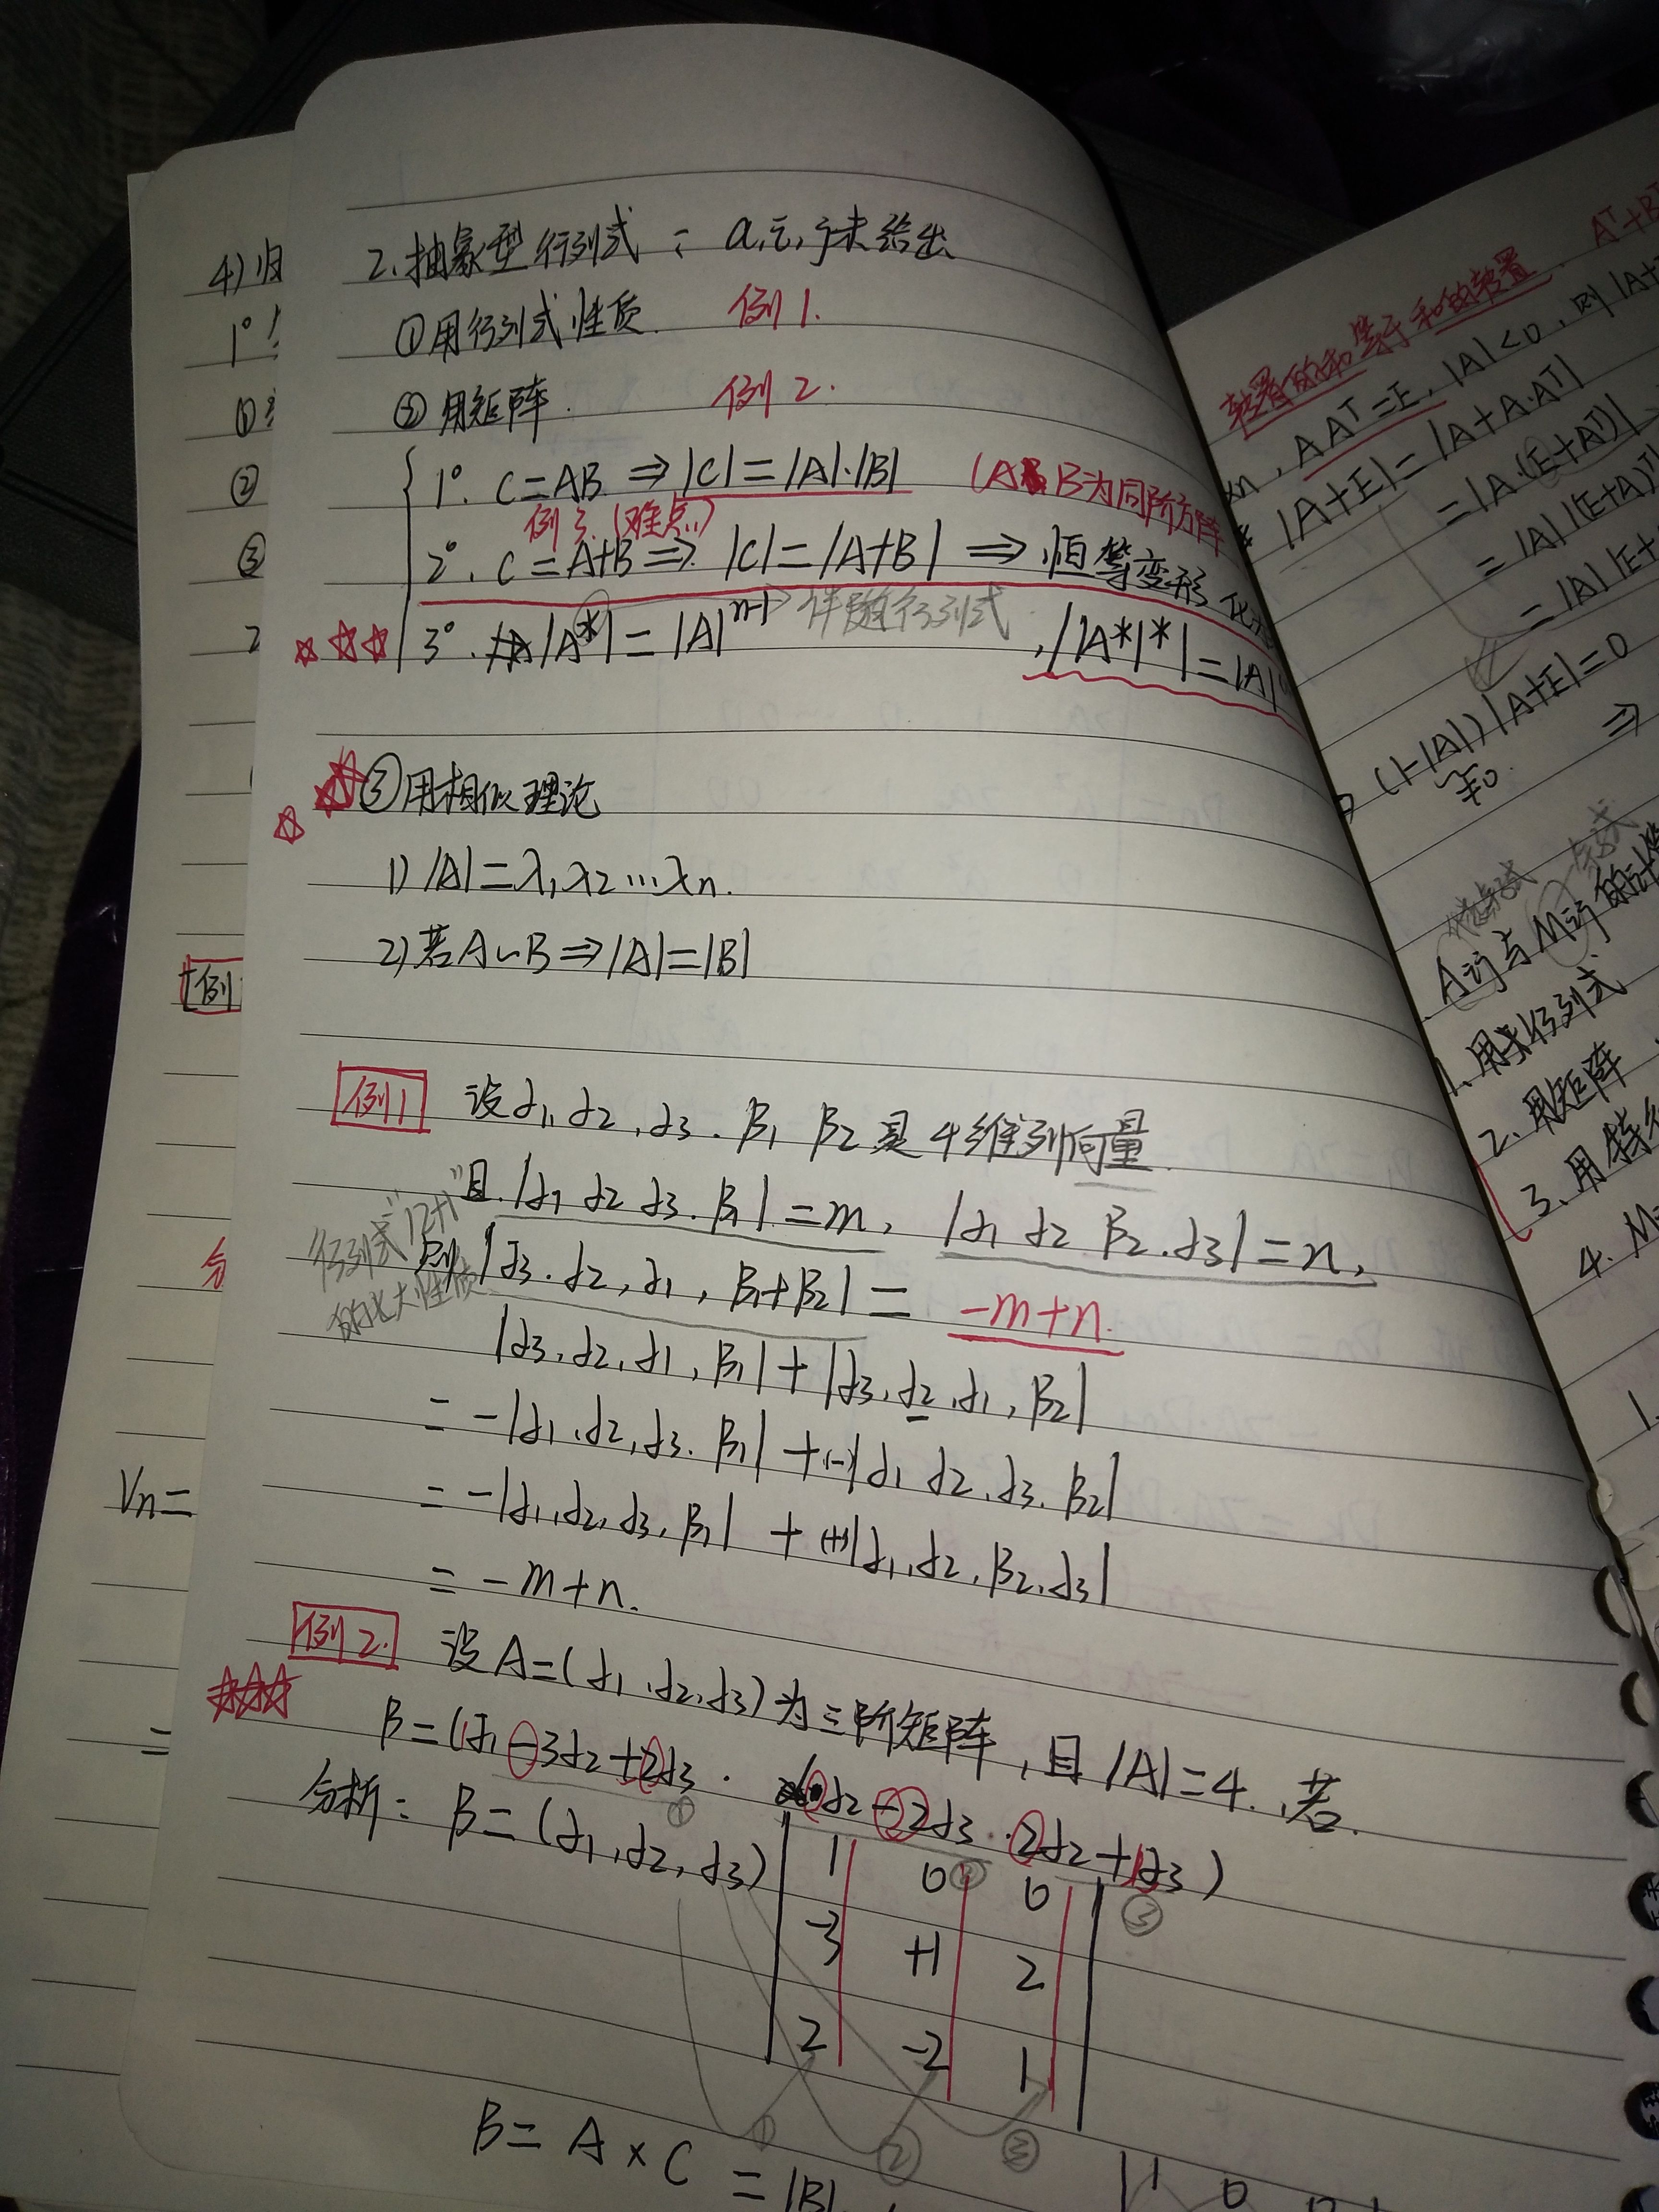 2. 抽象型行列式：a,i,j未给出
①用行列式性质. 例1.
②用矩阵. 例2.
1°. C=AB ⇒ |C|=|A|·|B| (A B为同阶方阵
例3.(难点)
2°. C=A+B ⇒ |C|=|A+B| ⇒ 恒等变形
3°. |A*|=|A|^{n-1} 伴随行列式, ||A*|*|=|A|
③用相似理论
1) |A|=λ1,λ2…λn.
2) 若A∽B⇒|A|=|B|
例1 设α1,α2,α3.β1 β2是4维列向量
且.|α1 α2 α3.β1|=m, |α1 α2 β2.α3|=n,
则|α3.α2,α1,β1+β2|= -m+n.
行列式"12+1"
的九大性质
|α3.α2,α1,β1|+|α3.α2.α1,β2|
= -|α1.α2,α3.β1|+(-)|α1 α2.α3.β2|
= -|α1,α2,α3,β1| + (+)|α1,α2,β2,α3|
= -m+n.
例2. 设A=(α1,α2,α3)为三阶矩阵,且|A|=4.,若.
B=(1α1-3α2+2α3. α2-2α3.2α2+1α3)
① ② ③
分析：B=(α1,α2,α3) | 1 0 0 |
-3 +1 2
2 -2 1
① ② ③
B=A×C
=|B|
1 0 0
4)归
1°
①
②
③
2
[例
分
Vn=
=
转置的和等于和的转置
AAᵀ=E, |A|<0,则|A+
|A+E|=|A+A·Aᵀ|
=|A·(E+Aᵀ)|
=|A||(E+A)ᵀ
=|A||E+
(1-|A|)|A+E|=0
⇒
≠0.
Aij与Mij的计算
1. 用行列式
2. 用矩阵
3. 用特
4. M
1.